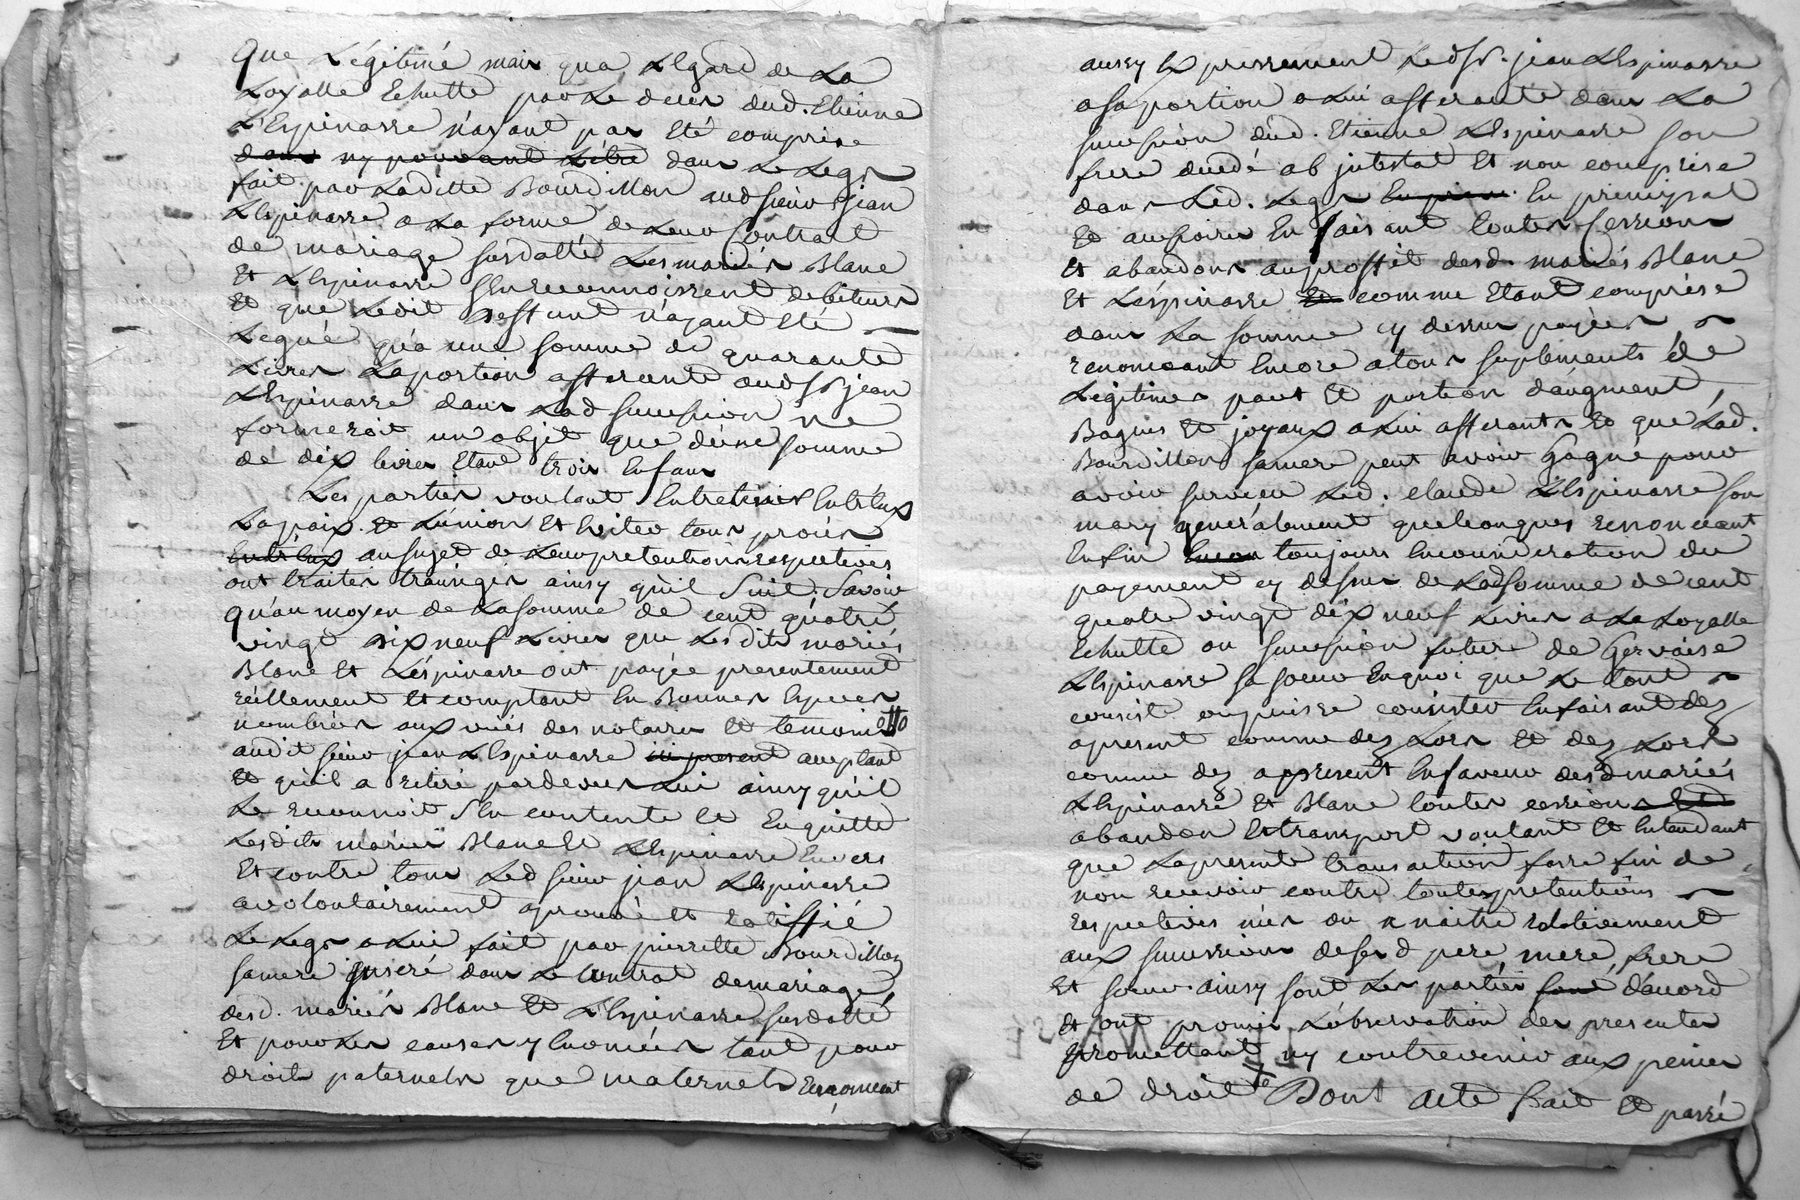 que Légitimé mais qua Légard de La
Loyalle Echutte par Le deces dud. Etienne
L'Espinasse n'ayant pas Eté comprise
dans ny pouvant L'être dans Le Legs
fait par Laditte Bourdillon aud sieur jean
LEspinasse a La forme de Leur Contrat
de mariage susdatté Les mariés Blanc
Et LEspinasse sEn reconnoissent debiteurs
Et que Ledit deffunt n'ayant Eté
Legué qu'a une somme de quarante
Livres La portion afferante aud Sr jean
LEspinasse dans Lad succession ne
formeroit un objet que d'une somme
de dix livres Etant trois Enfans
Les parties voulant Entretenir Entr'Eux
La paix Et L'union Et Eviter tous procés
Entr'Eux au sujet de Leurs pretentions respectives
ont traités transigés ainsy qu'il suit Savoir
qu'au moyen de La somme de cent quatre
vingt dix neuf Livres que Lesdits mariés
Blanc Et LEspinasse ont payée presentement
réellement Et comptant En Bonnes Especes
nombrées aux vües des notaires Et temoins
audit sieur jean LEspinasse icy present acceptant
Et qu'il a retiré pardevers Lui ainsy qu'il
Le reconnoit s'En contente Et En quitte
Lesdits mariés Blanc Et LEspinasse Envers
Et contre tous Led sieur jean LEspinasse
a volontairement aprouvé Et ratiffié
Le Legs a Lui fait par pierrette Bourdillon
sa mere inseré dans Le Contrat de mariage
desd. mariés Blanc Et LEspinasse susdatté
Et pour Les causes y Enoncées tant pour
droits paternels que maternels Renoncent
aussy Expressement Led Sr. jean LEspinasse
a sa portion a Lui afferante dans La
succession dud. Etienne LEspinasse son
frere decedé ab intestat Et non comprise
dans Led. Legs En principal
Et accessoires En faisant toutes Cessions
Et abandons au proffit desd. mariés Blanc
Et LEspinasse Et comme Etant comprise
dans La somme cy dessus payée
renonceant Encore a tous suplements de
Légitimes part Et portion d'augment
Bagues Et joyaux a Lui afferants Et que Lad.
Bourdillon sa mere peut avoir Gagné pour
avoir survecu Led. claude LEspinasse son
mary généralement quelconques renonceant
Enfin toujours En consideration du
payement cy dessus de Lad somme de cent
quatre vingt dix neuf Livres a La Loyalle
Echutte ou succession future de Gervaise
LEspinasse sa soeur En quoi que Le tout
consiste ou puisse consister En faisant dez
a present comme dez Lors Et dez Lors
comme dez a present En faveur desd mariés
LEspinasse Et Blanc toutes cessions Et
abandon Et transport voulant Et Entendant
que La presente transaction fasse fin de
non recevoir contre toutes pretentions
respectives nées ou a naitre relativement
aux successions de sesd pere, mere, frere
Et soeur ainsy sont Les parties sont d'acord
Et ont promis L'observation des presentes
promettant ny contrevenir aux peines
de droit Dont acte fait Et passé